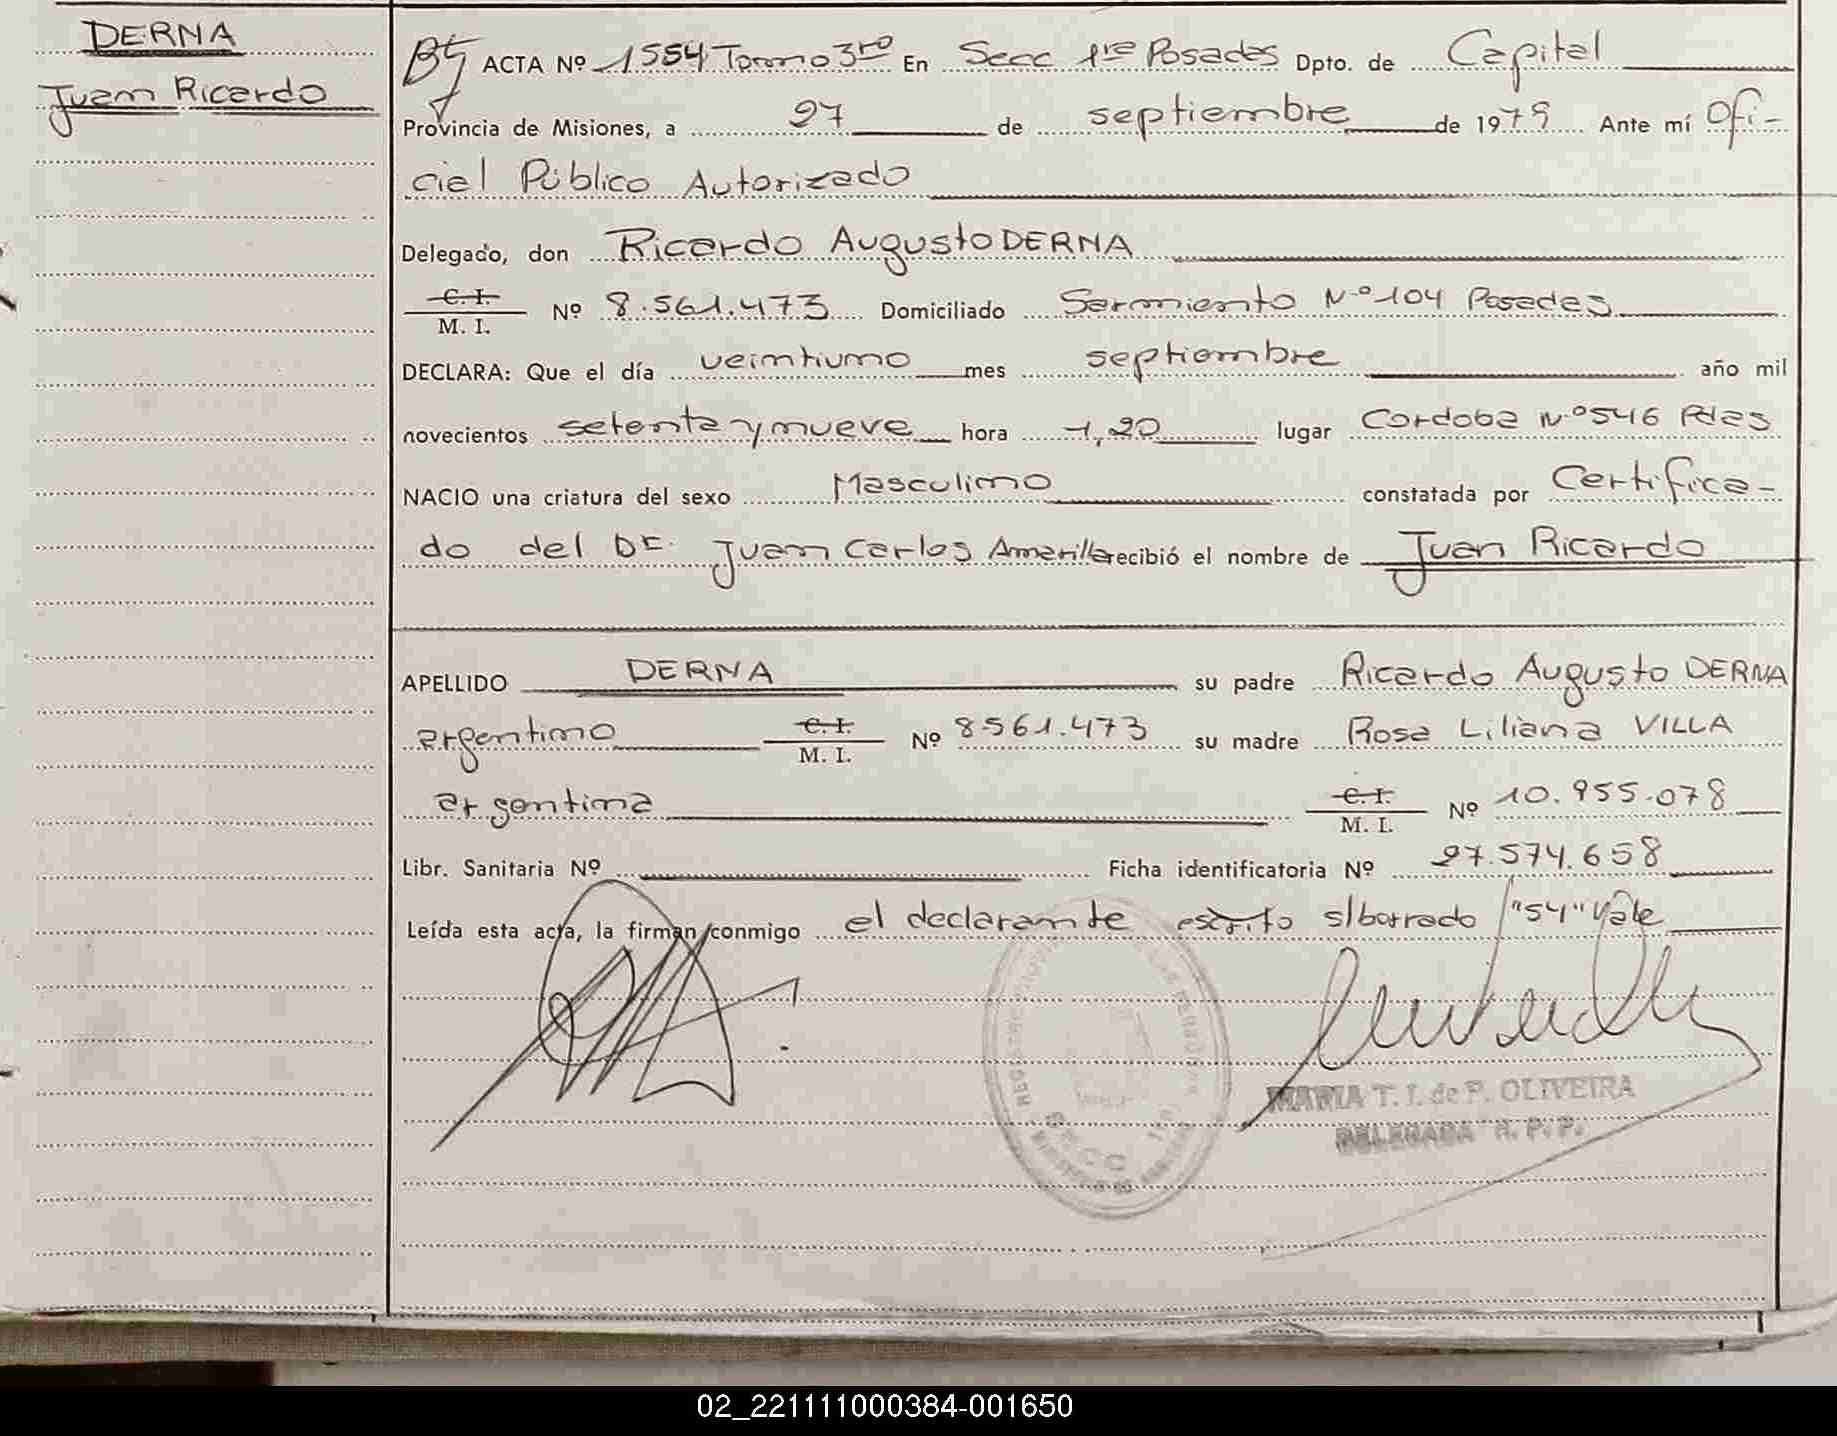 DERNA
Juan Ricardo
ACTA Nº 1554 Tomo 3ro En Secc 1ra Posadas Dpto. de Capital
Provincia de Misiones, a 27 de septiembre de 1979 Ante mí Ofi-
cial Público Autorizado
Delegado, don Ricardo Augusto DERNA
C. I.
M. I. Nº 8.561.473 Domiciliado Sarmiento Nº 104 Posadas
DECLARA: Que el día veintiuno mes septiembre año mil
novecientos setenta y nueve hora 1,20 lugar Cordoba Nº 546 Pdas
NACIO una criatura del sexo Masculino constatada por Certifica-
do del Dr. Juan Carlos Amarilla recibió el nombre de Juan Ricardo
APELLIDO DERNA su padre Ricardo Augusto DERNA
argentino C. I. M. I. Nº 8.561.473 su madre Rosa Liliana VILLA
argentina C. I. M. I. Nº 10.955.078
Libr. Sanitaria Nº Ficha identificatoria Nº 27.574.658
Leída esta acta, la firman conmigo el declarante escrito s/borrado "54" Vale
MARIA T. I. de P. OLIVEIRA
DELEGADA R. P. P.
SECC 1ra
02_221111000384-001650